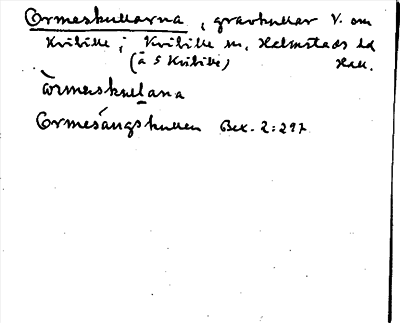 Ormeskullarna, gravkullar V. om
Kvibille i Kvibille sn, Halmstads hd
(å 5 Kvibille) Hall.
òrmeskullana
Ormesängskullen Bex. 2:297